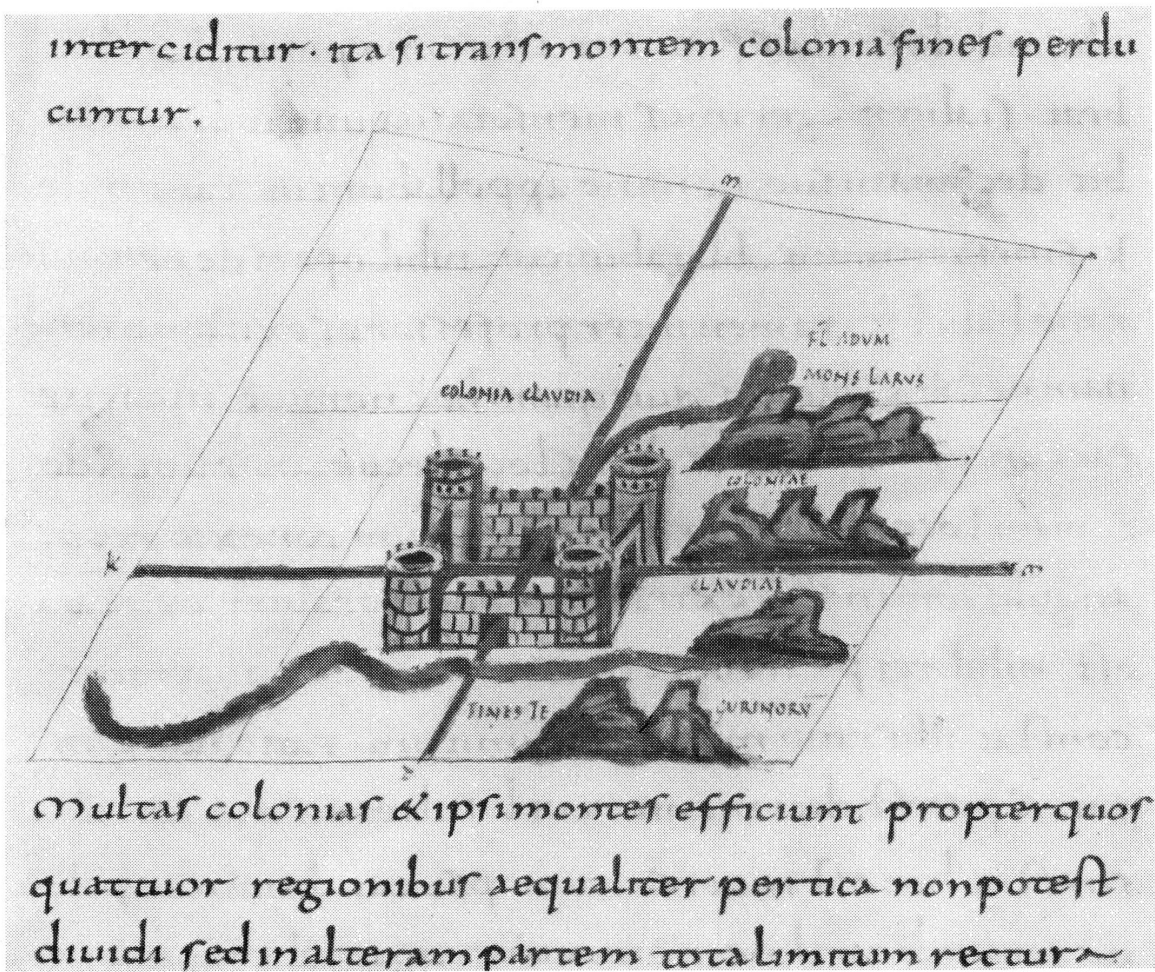 interciditur. ita si trans montem colonia fines perdu
cuntur.
m
FL ADUM
MONS LARUS
COLONIA CLAUDIA
COLONIAE
k
m
CLAUDIAE
FINES TE
GURINORV
Multas colonias & ipsi montes efficiunt propter quos
quattuor regionibus aequaliter pertica non potest
diuidi sed in alteram partem tota limitum rectura